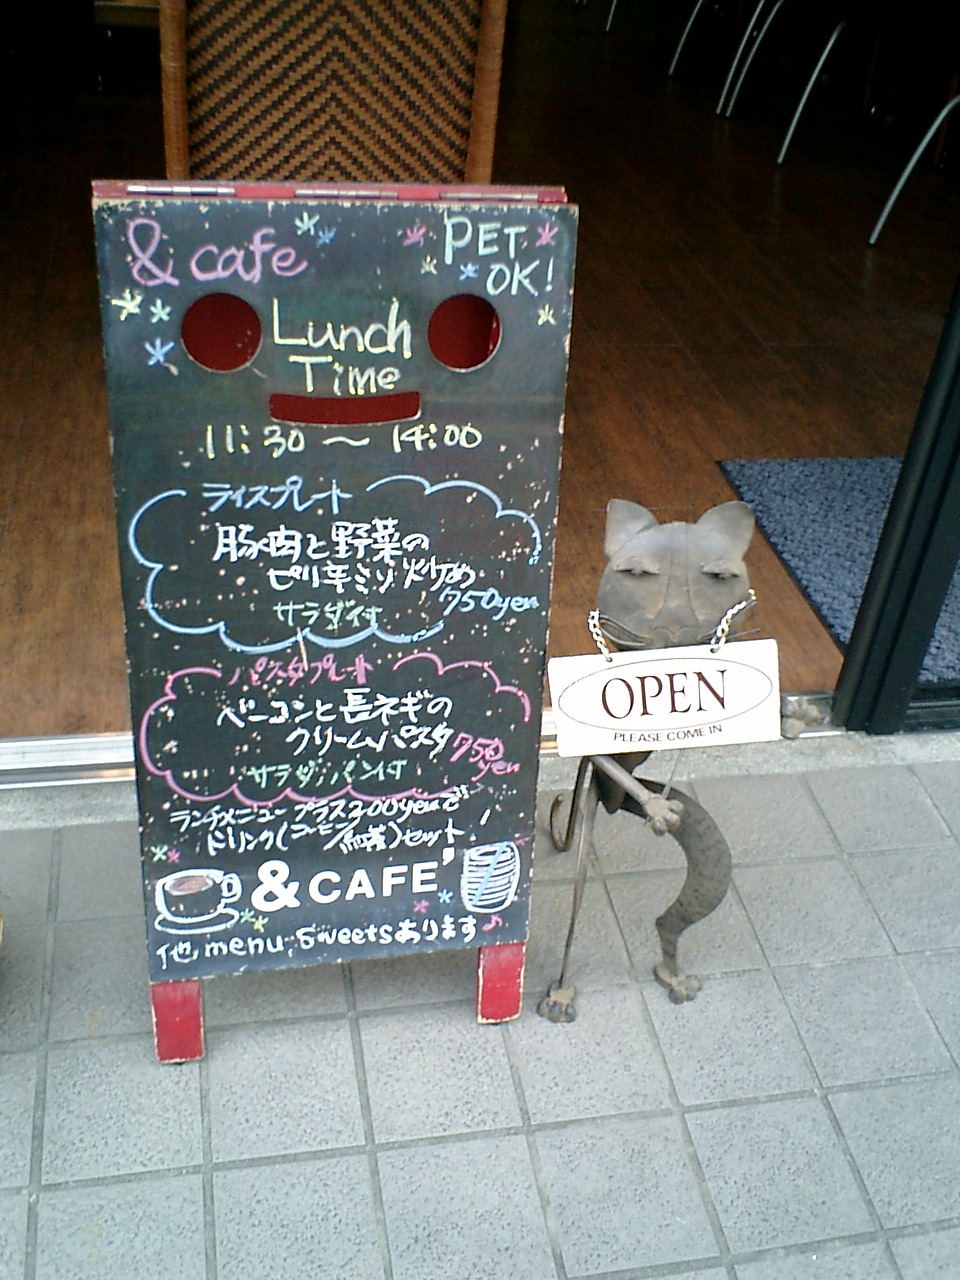 & cafe
PET
OK!
Lunch
Time
11:30 〜 14:00
ライスプレート
豚肉と野菜の
ピリ辛ミソ炒め
750yen
サラダ付
パスタプレート
ベーコンと長ネギの
クリームパスタ
750
yen
サラダ,パン付
ランチメニュープラス200yenで
ドリンク(コーヒー/紅茶)セット!
& CAFE'
他 menu, sweetsあります♪
OPEN
PLEASE COME IN